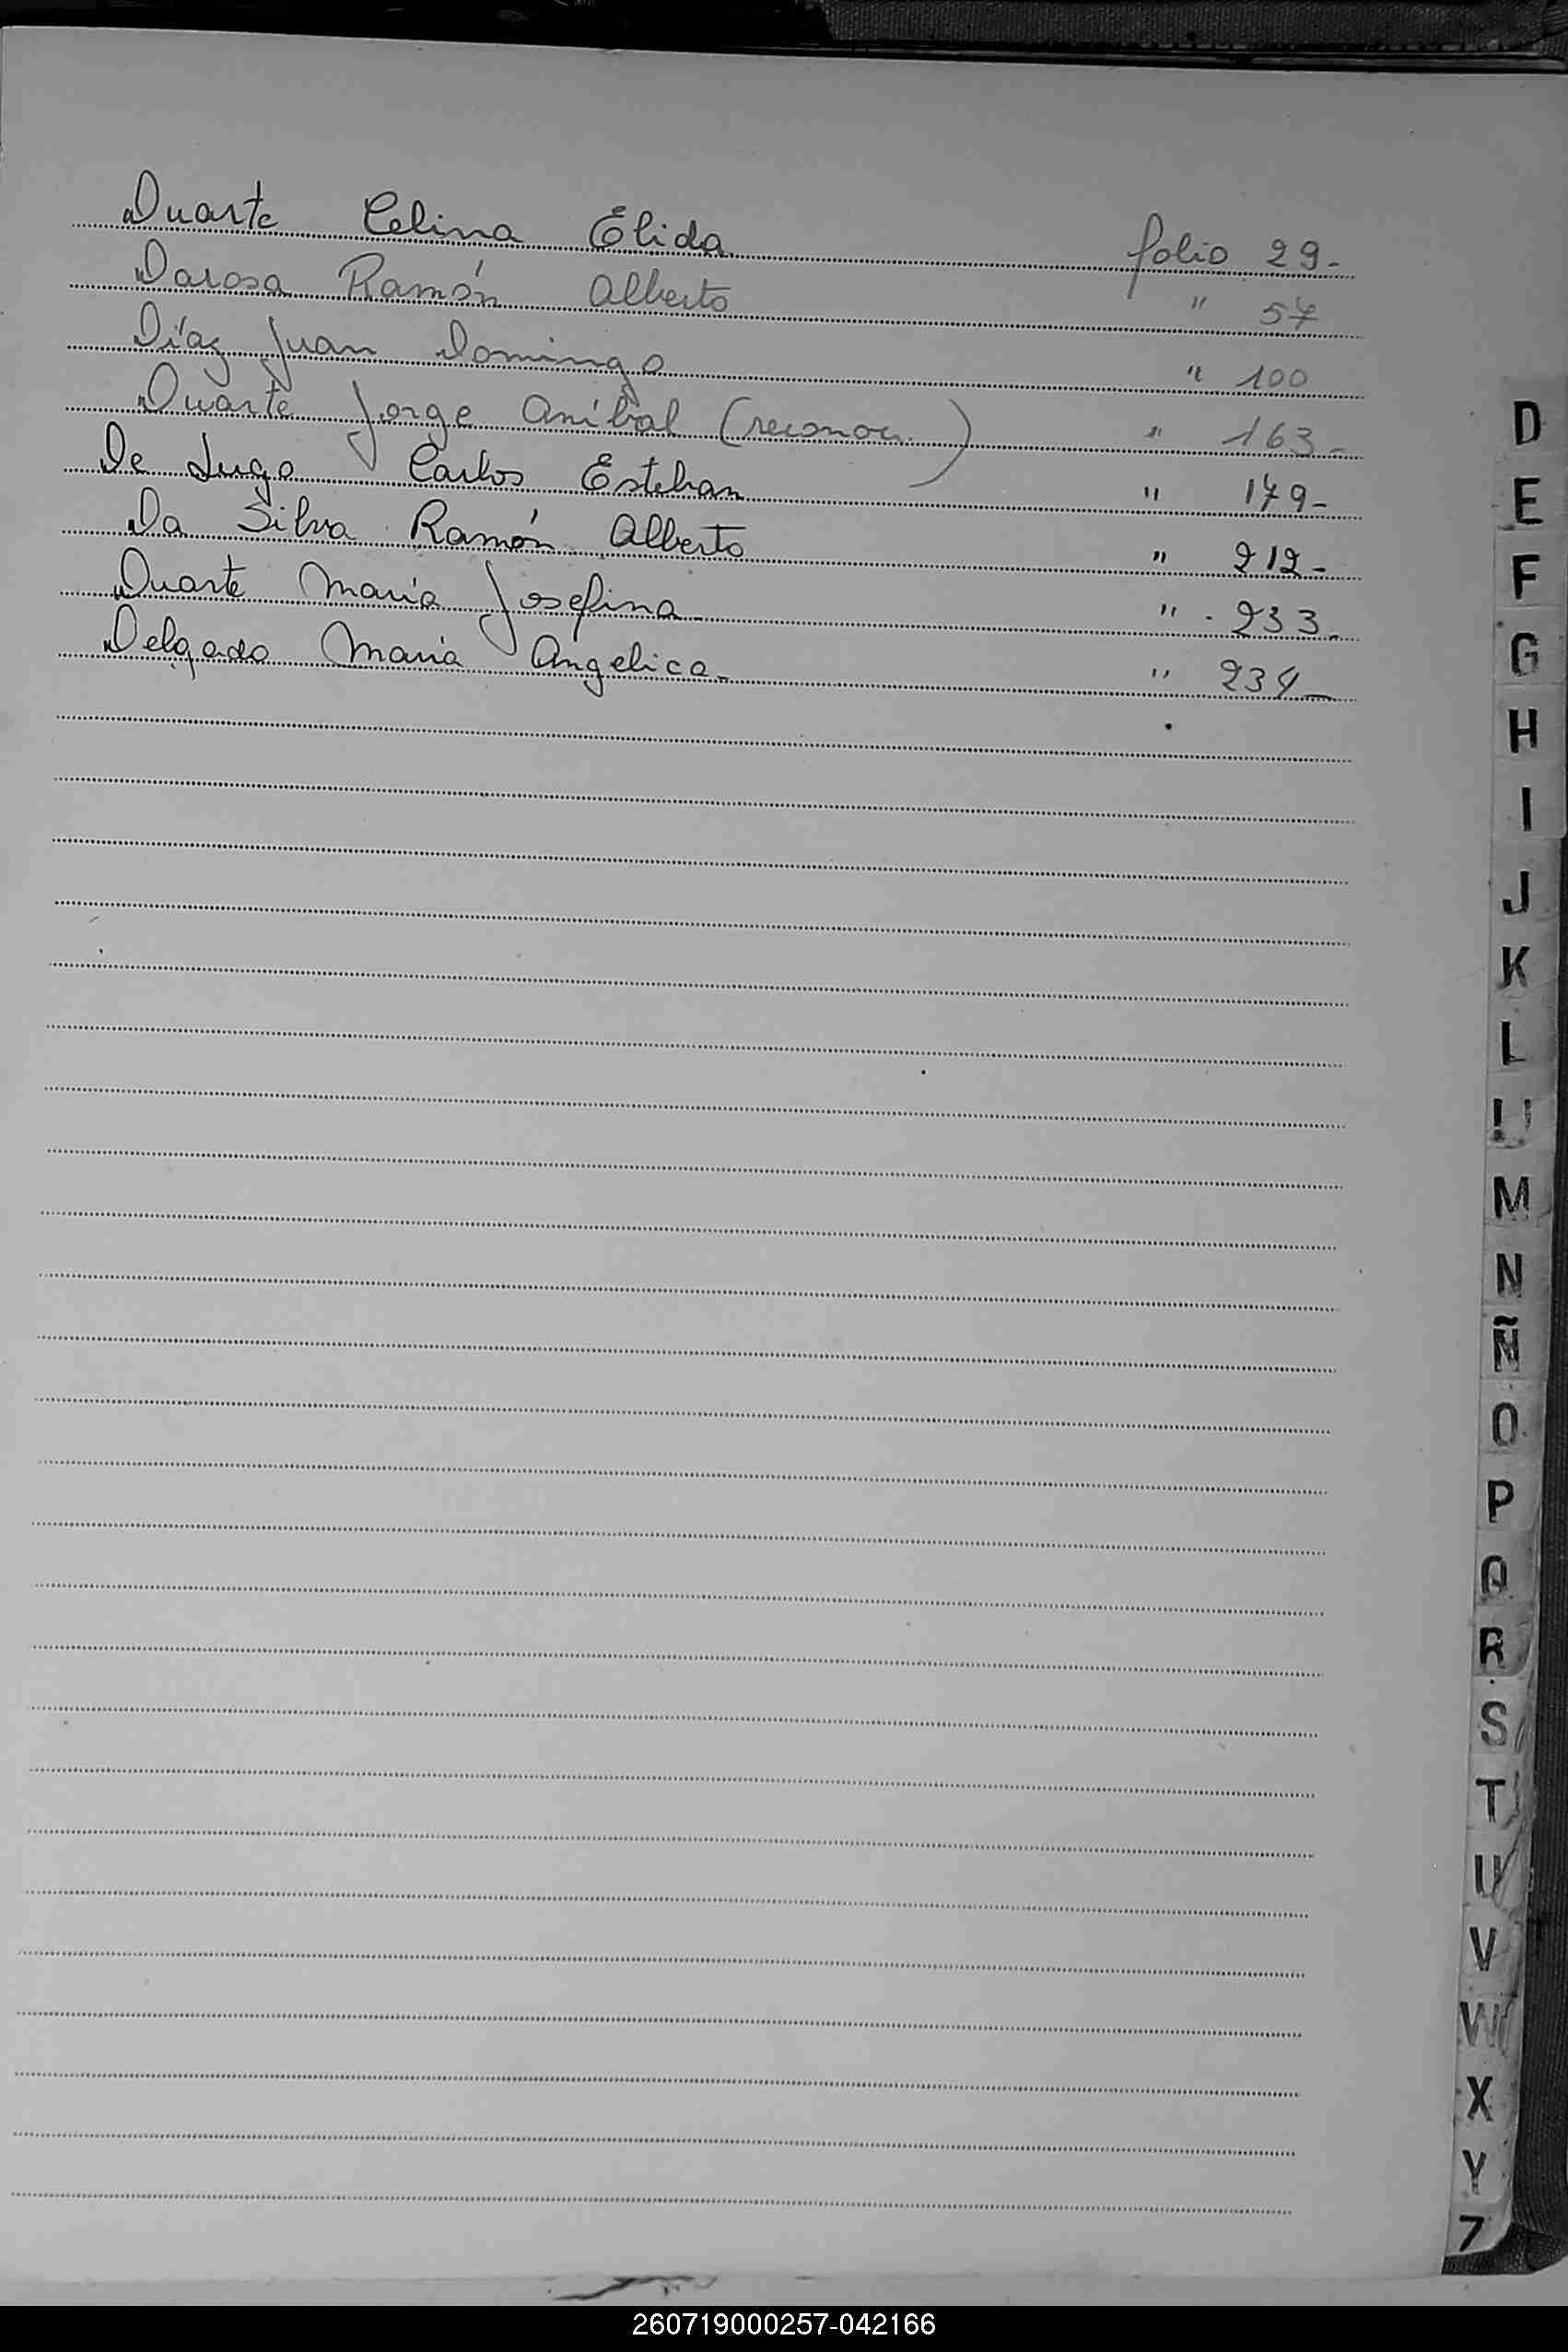 Duarte Celina Elida folio 29-
Darosa Ramón Alberto " 57
Díaz Juan Domingo " 100
Duarte Jorge Aníbal (reconoc.) " 163-
De Lugo Carlos Esteban " 179-
Da Silva Ramón Alberto " 212-
Duarte María Josefina " 233-
Delgado María Angelica- " 234-
D
E
F
G
H
I
J
K
L
M
N
Ñ
O
P
Q
R
S
T
U
V
W
X
Y
Z
260719000257-042166